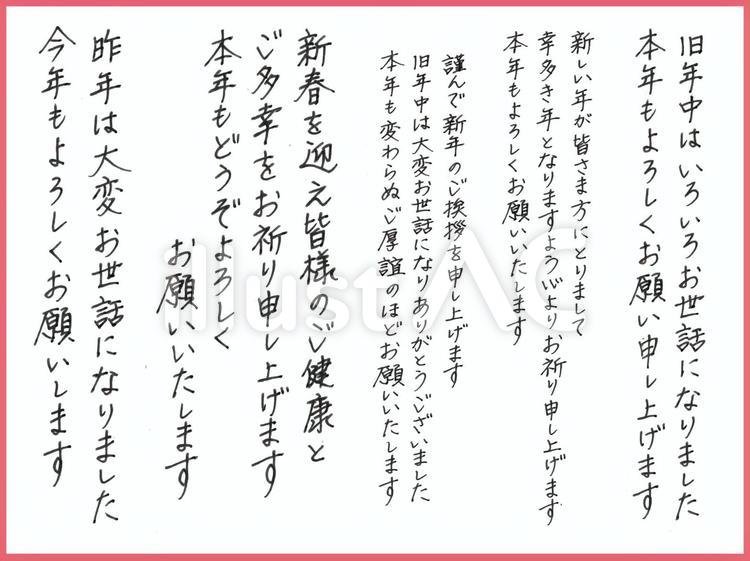 旧年中はいろいろお世話になりました
本年もよろしくお願い申し上げます
新しい年が皆さま方にとりまして
幸多き年となりますよう心よりお祈り申し上げます
本年もよろしくお願いいたします
謹んで新年のご挨拶を申し上げます
旧年中は大変お世話になりありがとうございました
本年も変わらぬご厚誼のほどお願いいたします
新春を迎え皆様のご健康と
ご多幸をお祈り申し上げます
本年もどうぞよろしく
お願いいたします
昨年は大変お世話になりました
今年もよろしくお願いします
illust AC